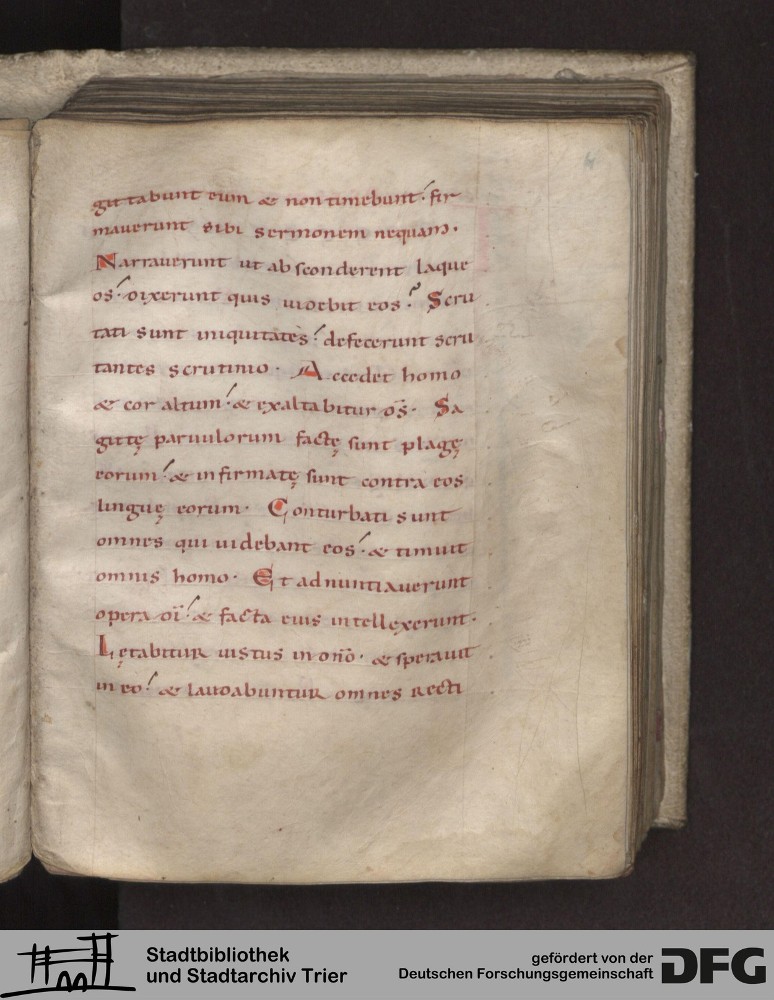 gittabunt eum & non timebunt. fir
mauerunt sibi sermonem nequam.
Narrauerunt ut absconderent laque
os. dixerunt quis uidebit eos? Scru
tati sunt iniquitates. defecerunt scru
tantes scrutinio. Accedet homo
& cor altum. & exaltabitur d̄s. Sa
gittę paruulorum factę sunt plagę
eorum. & infirmatę sunt contra eos
linguę eorum. Conturbati sunt
omnes qui uidebant eos. & timuit
omnis homo. Et adnuntiauerunt
opera dī. & facta eius intellexerunt.
Lętabitur iustus in dn̄o. & sperauit
in eo. & laudabuntur omnes recti
Stadtbibliothek
und Stadtarchiv Trier
gefördert von der
Deutschen Forschungsgemeinschaft
DFG